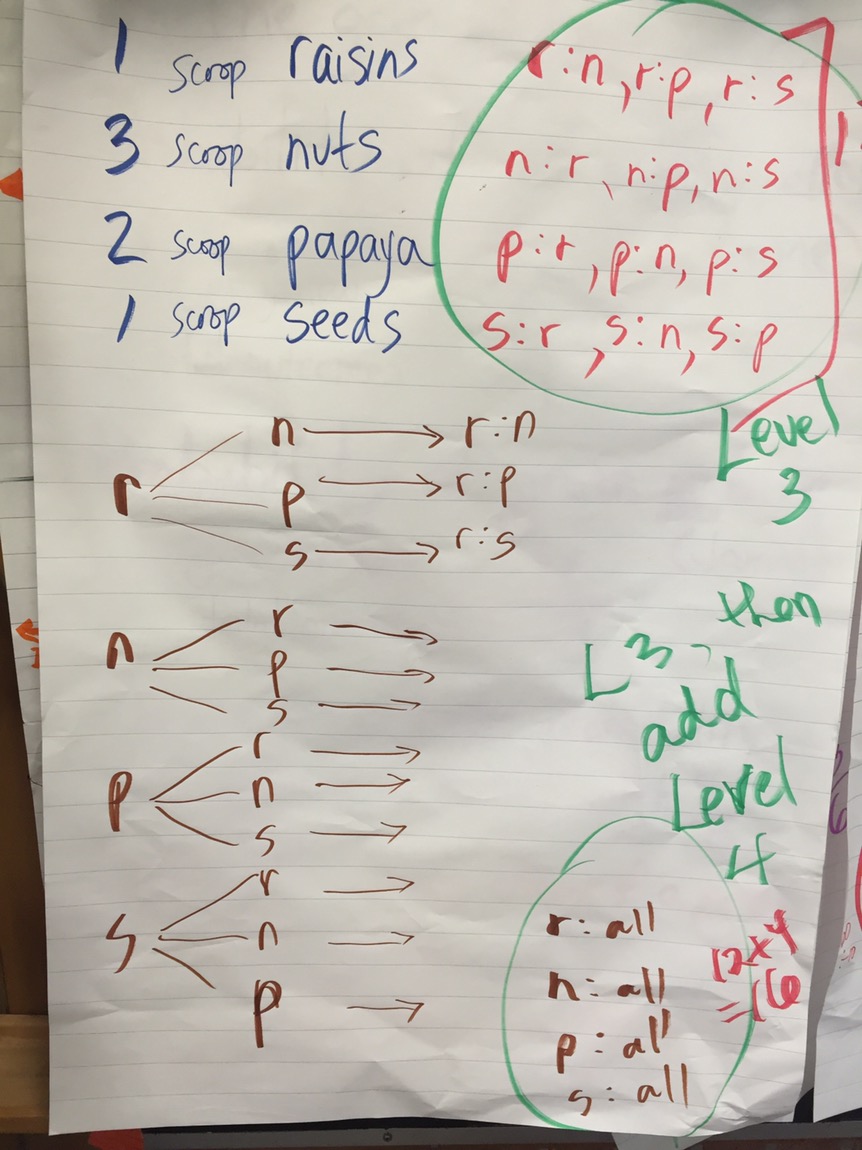 1 scoop raisins
3 scoop nuts
2 scoop papaya
1 scoop seeds
r:n, r:p, r:s
n:r, n:p, n:s
p:r, p:n, p:s
s:r, s:n, s:p
Level
3
r
n → r:n
p → r:p
s → r:s
n
r →
p →
s →
p
r →
n →
s →
s
r →
n →
p →
L3, then
add
Level
4
r: all
n: all
p: all
s: all
=16